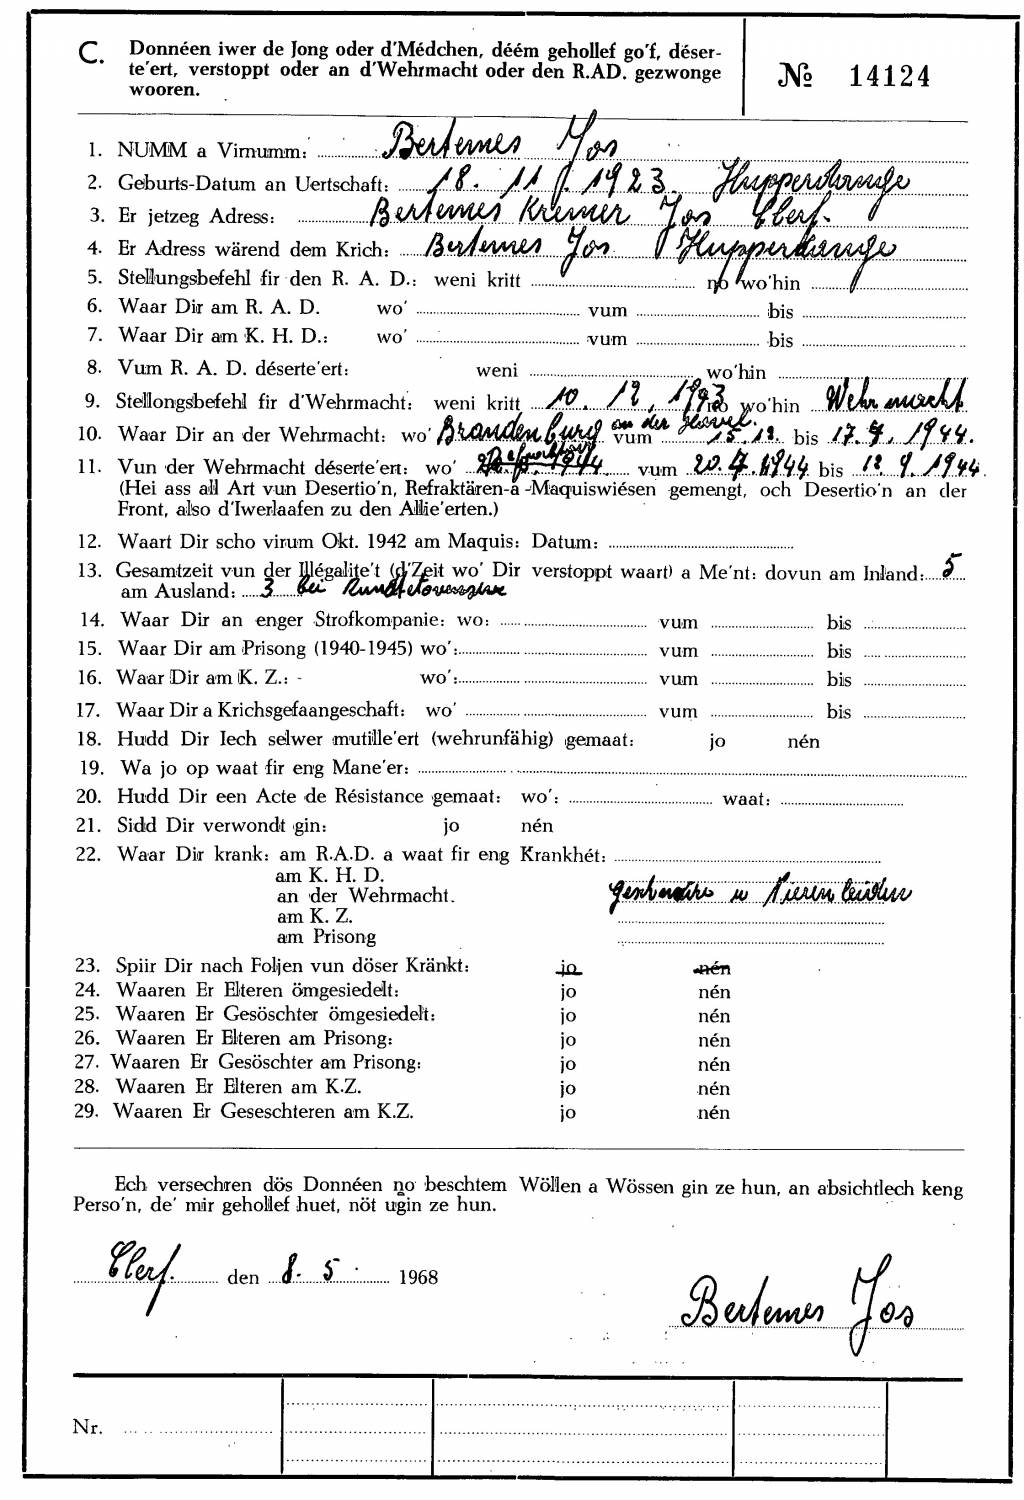 C. Donnéen iwer de Jong oder d'Médchen, déém gehollef go'f, déser-
te'ert, verstoppt oder an d'Wehrmacht oder den R.AD. gezwonge
wooren.
№ 14124
1. NUMM a Virnumm: Bertemes Jos
2. Geburts-Datum an Uertschaft: 18. 11. 1923. Hupperdange
3. Er jetzeg Adress: Bertemes Kremer Jos Clerf.
4. Er Adress wärend dem Krich: Bertemes Jos Hupperdange
5. Stellungsbefehl fir den R. A. D.: weni kritt no wo'hin
6. Waar Dir am R. A. D. wo' vum bis
7. Waar Dir am K. H. D.: wo' vum bis
8. Vum R. A. D. déserte'ert: weni wo'hin
9. Stellongsbefehl fir d'Wehrmacht: weni kritt 10. 12. 1943 no wo'hin Wehrmacht
10. Waar Dir an der Wehrmacht: wo' Brandenburg an der Havel. vum 15. 12. bis 17. 7. 1944.
11. Vun der Wehrmacht déserte'ert: wo' 1944 vum 20. 7. 1944 bis 12 9. 1944.
(Hei ass all Art vun Desertio'n, Refraktären-a -Maquiswiésen gemengt, och Desertio'n an der
Front, also d'Iwerlaafen zu den Allie'erten.)
12. Waart Dir scho virum Okt. 1942 am Maquis: Datum:
13. Gesamtzeit vun der Illégalite't (d'Zeit wo' Dir verstoppt waart) a Me'nt: dovun am Inland: 5
am Ausland: 3 bei
14. Waar Dir an enger Strofkompanie: wo: vum bis
15. Waar Dir am Prisong (1940-1945) wo': vum bis
16. Waar Dir am K. Z.: - wo': vum bis
17. Waar Dir a Krichsgefaangeschaft: wo' vum bis
18. Hudd Dir Iech selwer mutille'ert (wehrunfähig) gemaat: jo nén
19. Wa jo op waat fir eng Mane'er:
20. Hudd Dir een Acte de Résistance gemaat: wo': waat:
21. Sidd Dir verwondt gin: jo nén
22. Waar Dir krank: am R.A.D. a waat fir eng Krankhét:
am K. H. D.
an der Wehrmacht. u Nierenleiden
am K. Z.
am Prisong
23. Spiir Dir nach Foljen vun döser Kränkt: jo nén
24. Waaren Er Elteren ömgesiedelt: jo nén
25. Waaren Er Gesöschter ömgesiedelt: jo nén
26. Waaren Er Elteren am Prisong: jo nén
27. Waaren Er Gesöschter am Prisong: jo nén
28. Waaren Er Elteren am K.Z. jo nén
29. Waaren Er Geseschteren am K.Z. jo nén
Ech versechren dös Donnéen no beschtem Wöllen a Wössen gin ze hun, an absichtlech keng
Perso'n, de' mir gehollef huet, nöt ugin ze hun.
Clerf. den 8. 5. 1968
Bertemes Jos
Nr.